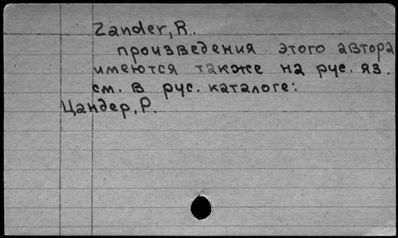 Zander, R.
произведения этого автора
имеются также на рус. яз.
см. в рус. каталоге:
Цандер, Р.